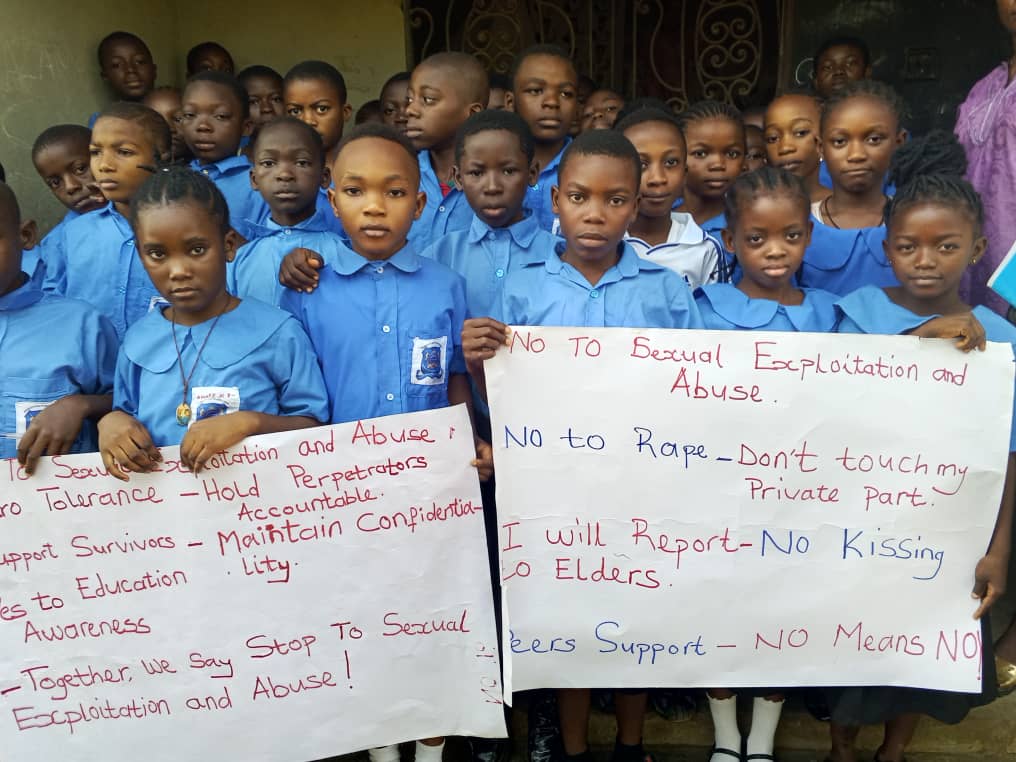 To Sexual Exploitation and Abuse:
ro Tolerance - Hold Perpetrators
Accountable.
upport Survivors - Maintain Confidentia-
lity.
es to Education
Awareness
- Together, we say Stop To Sexual
Exploitation and Abuse!
No To Sexual Exploitation and
Abuse.
No to Rape - Don't touch my
Private Part.
I will Report - No Kissing
to Elders.
eers Support - NO Means NO!